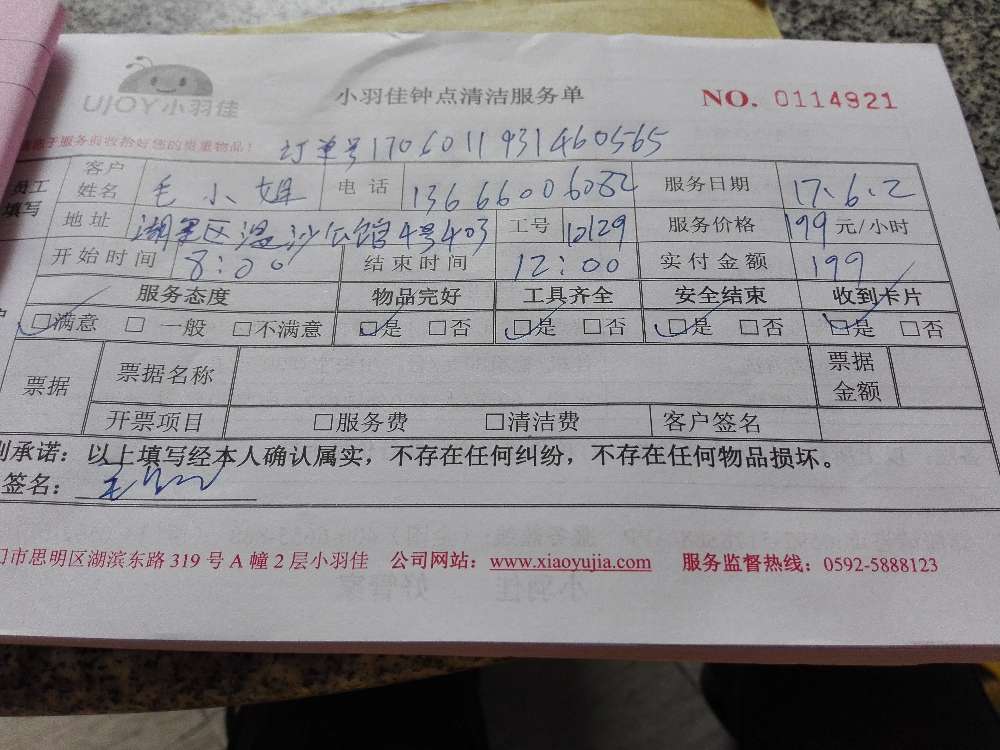 UJOY小羽佳
小羽佳钟点清洁服务单
NO. 0114921
服务员收拾好您的贵重物品!
订单号1706011931460565
员工填写
客户姓名 毛小姐 电话 13666006082 服务日期 17.6.2
地址 湖景区温沙公馆4号403 工号 12129 服务价格 199 元/小时
开始时间 8:00 结束时间 12:00 实付金额 199
服务态度 物品完好 工具齐全 安全结束 收到卡片
☑满意 □一般 □不满意 ☑是 □否 ☑是 □否 ☑是 □否 ☑是 □否
票据 票据名称 票据金额
开票项目 □服务费 □清洁费 客户签名
承诺：以上填写经本人确认属实，不存在任何纠纷，不存在任何物品损坏。
签名：毛
市思明区湖滨东路 319 号 A 幢 2 层小羽佳 公司网站：www.xiaoyujia.com 服务监督热线：0592-5888123